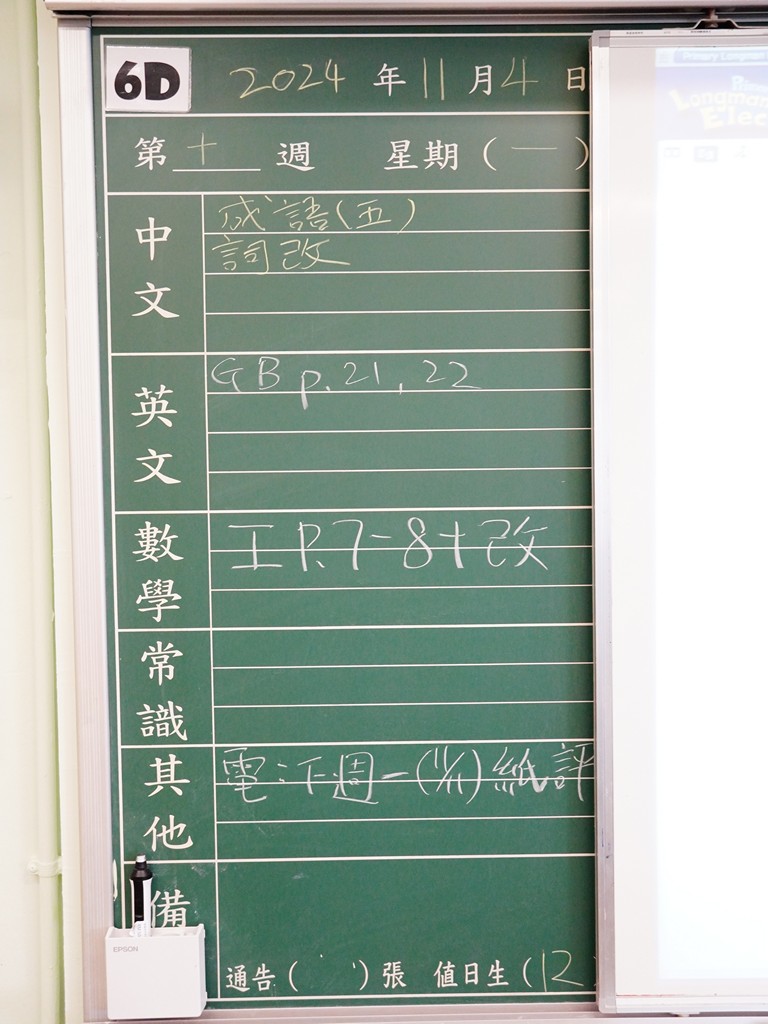 6D
2024 年 11 月 4 日
第 十 週 星期 ( 一 )
中文
成語(五)
詞改
英文
GB p.21, 22
數學
工 P.7-8+改
常識
其他
電:下週一(11/11)紙評
備
通告 ( ) 張 值日生 (12
EPSON
Primary Longman
Longman
Elec